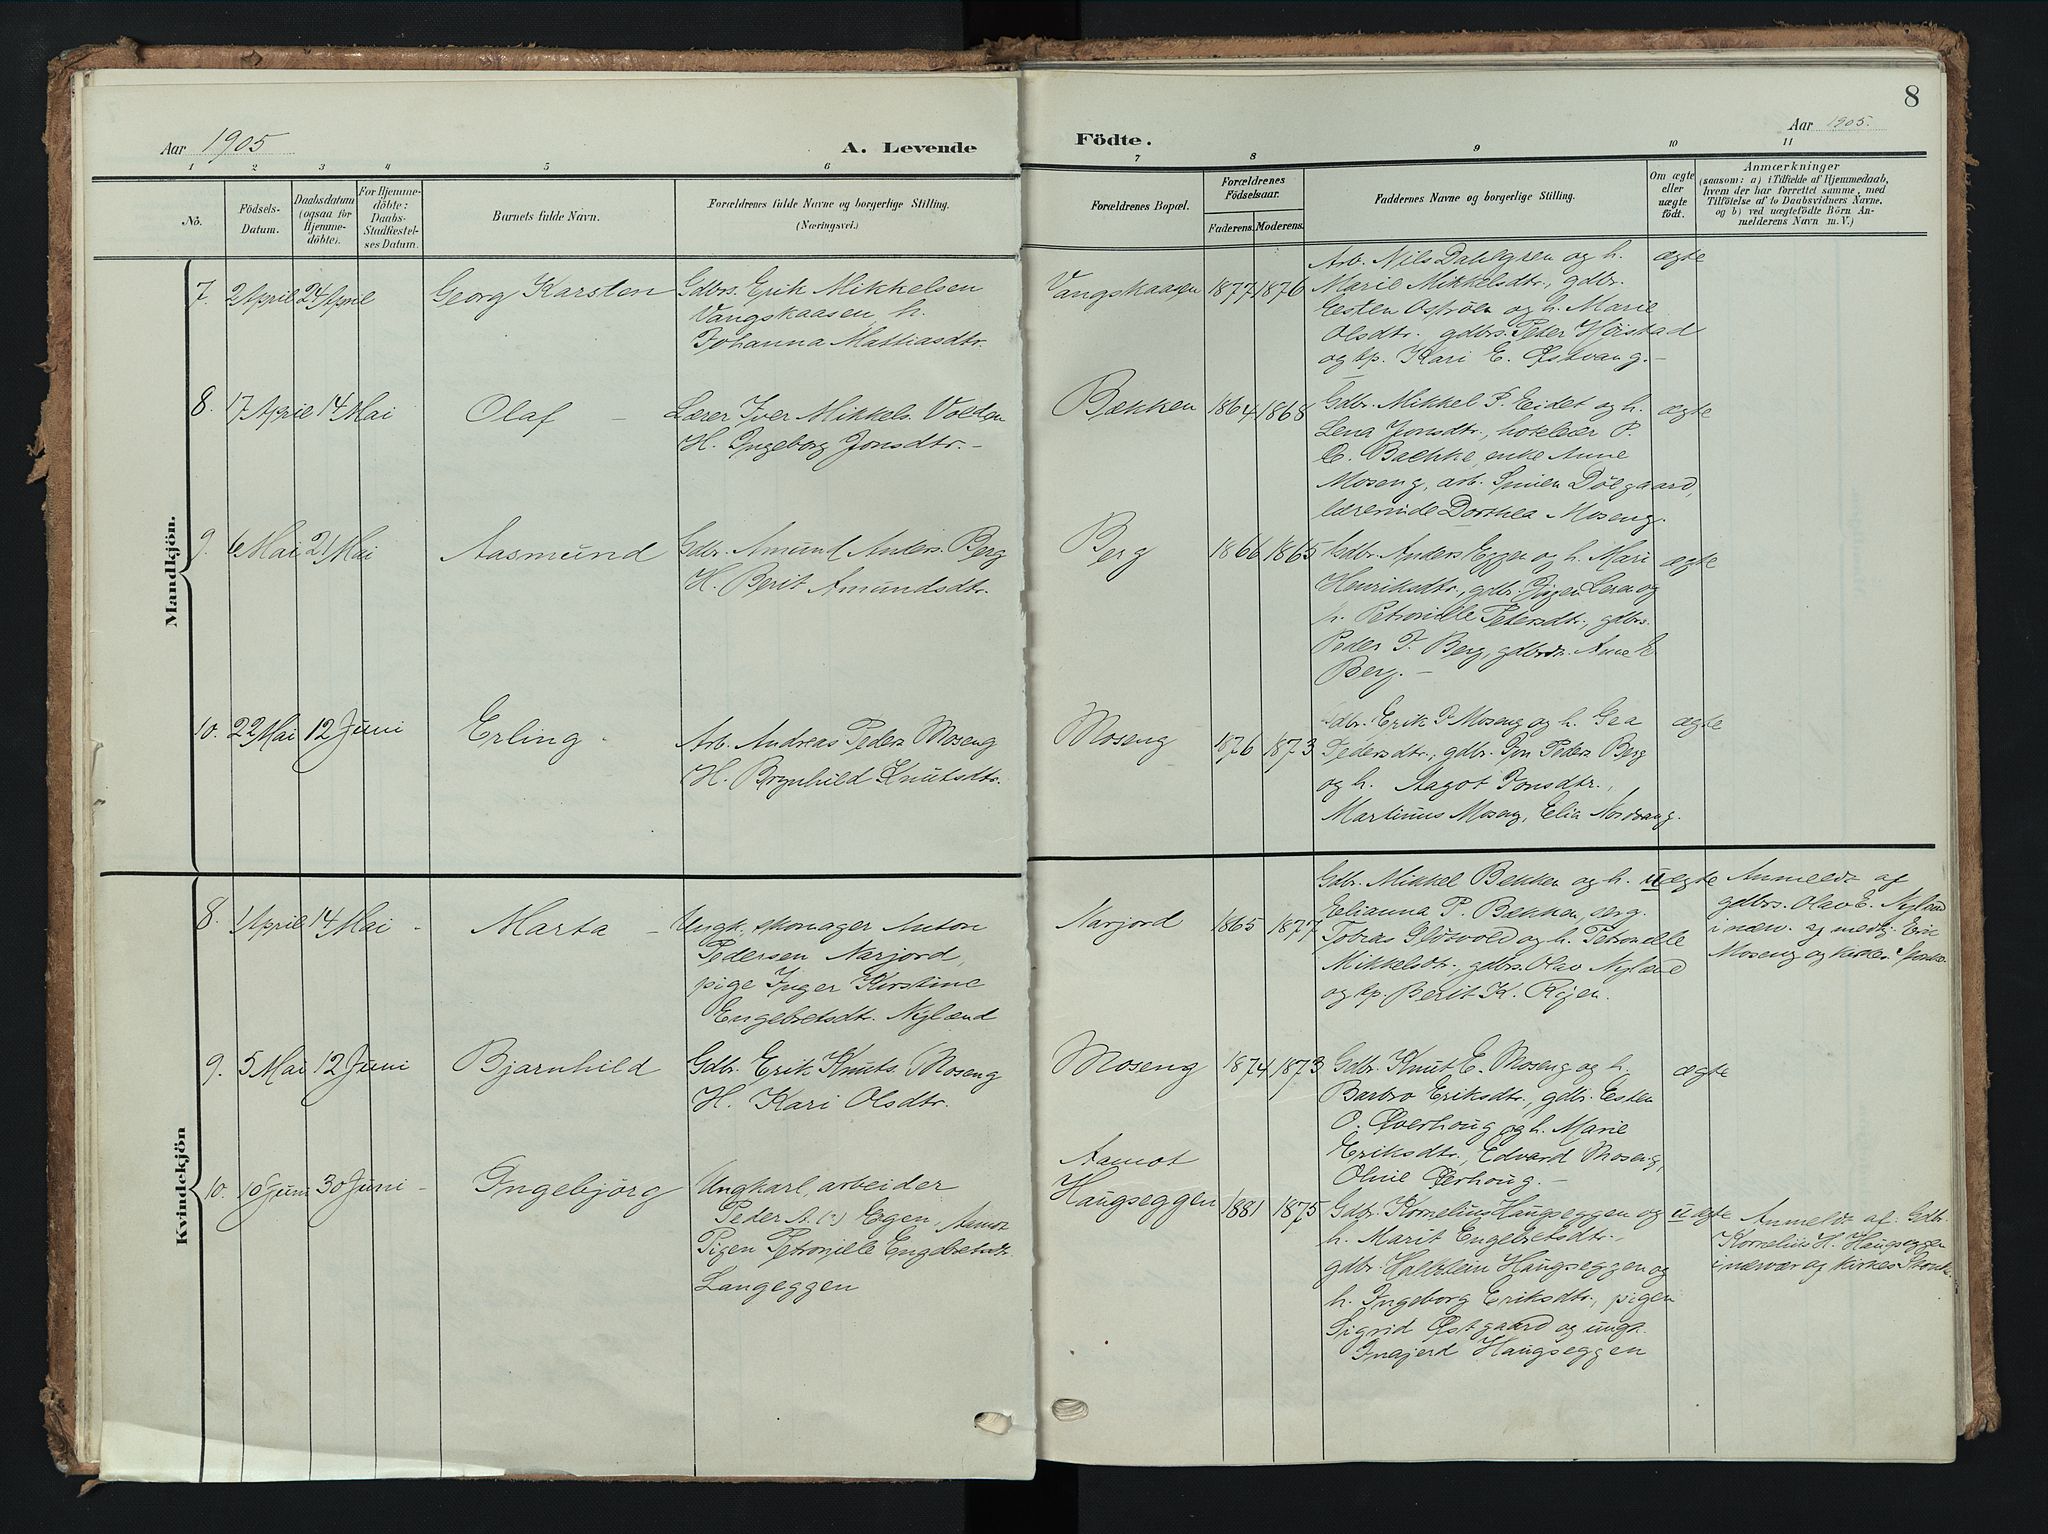 8
Aar 1905
A. Levende
Födte.
Aar 1905.
1 2 3 4 5 6 7 8 9 10 11
No.
Födsels-
Datum.
Daabsdatum
(ogsaa for
Hjemme-
döbte).
For Hjemme-
döbte:
Daabs-
Stadfæstel-
ses Datum.
Barnets fulde Navn.
Forældrenes fulde Navne og borgerlige Stilling.
(Næringsvei.)
Forældrenes Bopæl.
Forældrenes
Födselsaar.
Faderens. Moderens.
Faddernes Navne og borgerlige Stilling.
Om ægte
eller
uægte
födt.
Anmærkninger
(saasom: a) i Tilfælde af Hjemmedaab,
hvem der har forrettet samme, med
Tilföielse af to Daabsvidners Navne,
og b) ved uægtefödte Börn An-
melderens Navn m. V.)
Mandkjön.
7. 2 April 24 April Georg Karsten
Gdbrs. Erik Mikkelsen
Vangskaasen h.
Johanna Mattiasdtr.
Vangskaasen 1877 1876
Arb. Nils Dahlgren og h.
Marie Mikkelsdtr., gdbr.
Esten Oströen og h. Marie
Olsdtr. gdbrs. Peter Hjirstad
og tp. Kari E. Østvang.-
ægte
8. 17 April 14 Mai Olaf -
Lærer Iver Mikkels. Volden
H. Ingeborg Jonsdtr. -
Bækken 1864 1868
Gdbr. Mikkel P. Eidet og h.
Lena Jonsdtr., hoteleier P.
O. Baekke, enke Anne
Moseng, arb. Dölgaard,
lærerinde Dorthea Moseng.
ægte
9. 6 Mai 21 Mai Aasmund
Gdbr. Amund Anders. Berg
H. Berit Amundsdtr.
Berg 1866 1865
Gdbr. Anders Eggen og h. Mari
Henriksdtr., gdbr. Lera og
h. Petronille Petersdtr., gdbrs.
Peder J. Berg, gdbrdtr. Anne E
Berg. -
ægte
10. 22 Mai 12 Juni Erling -
Arb. Andreas Peders Moseng
H. Brynhild Knutsdtr.
Moseng 1876 1873
Gdbr. Erik P. Moseng og h. Gea
Pedersdtr., gdbr. Jon Peders Berg
og h. Aagot Jonsdtr.,
Martinus Moseng, Elia Nordvang.
ægte
Kvindekjön
8. 1 April 14 Mai - Marta -
Ungk., skomager Anton
Pedersen Narjord,
pige Inger Kirstine
Engebretsdtr. Nylænd
Narjord 1865 1877
Gdbr. Mikkel Bekken og h.
Elianna P. Bækken, serg.
Tobias Gløsvold og h. Petronelle
Mikkelsdtr., gdbrs. Olav Nylænd
og tp. Berit K. Rijen.
uægte
Anmeldt af
gdbrs. Olav E. Nylænd
i nærv. af medhj. Eric
Moseng og kirkes.
9. 5 Mai 12 Juni Bjarnhild
Gdbr. Erik Knuts. Moseng
H. Kari Olsdtr.
Moseng 1874 1873
Gdbr. Knut E. Moseng og h.
Barbro Eriksdtr., gdbr. Esten
O. Øverhoug og h. Marie
Eriksdtr., Edvard Moseng,
Oline Øverhoug. -
ægte
10. 10 Juni 30 Juni - Ingebjörg
Ungkarl, arbeider
Peder A. (?) Egen, Aamot
Pigen Petronille Engebretsdtr.
Langeggen
Aamot
Haugseggen 1881 1875
Gdbr. Kornelius Haugseggen og
h. Marit Engebretsdtr.,
gdbr. Halstein Haugseggen og
h. Ingeborg Eriksdtr., pigen
Sigrid Østgaard og ungk.
Haugseggen
uægte
Anmeldt af: Gdbr.
Kornelius H. Haugseggen
i nærvær af kirkes.